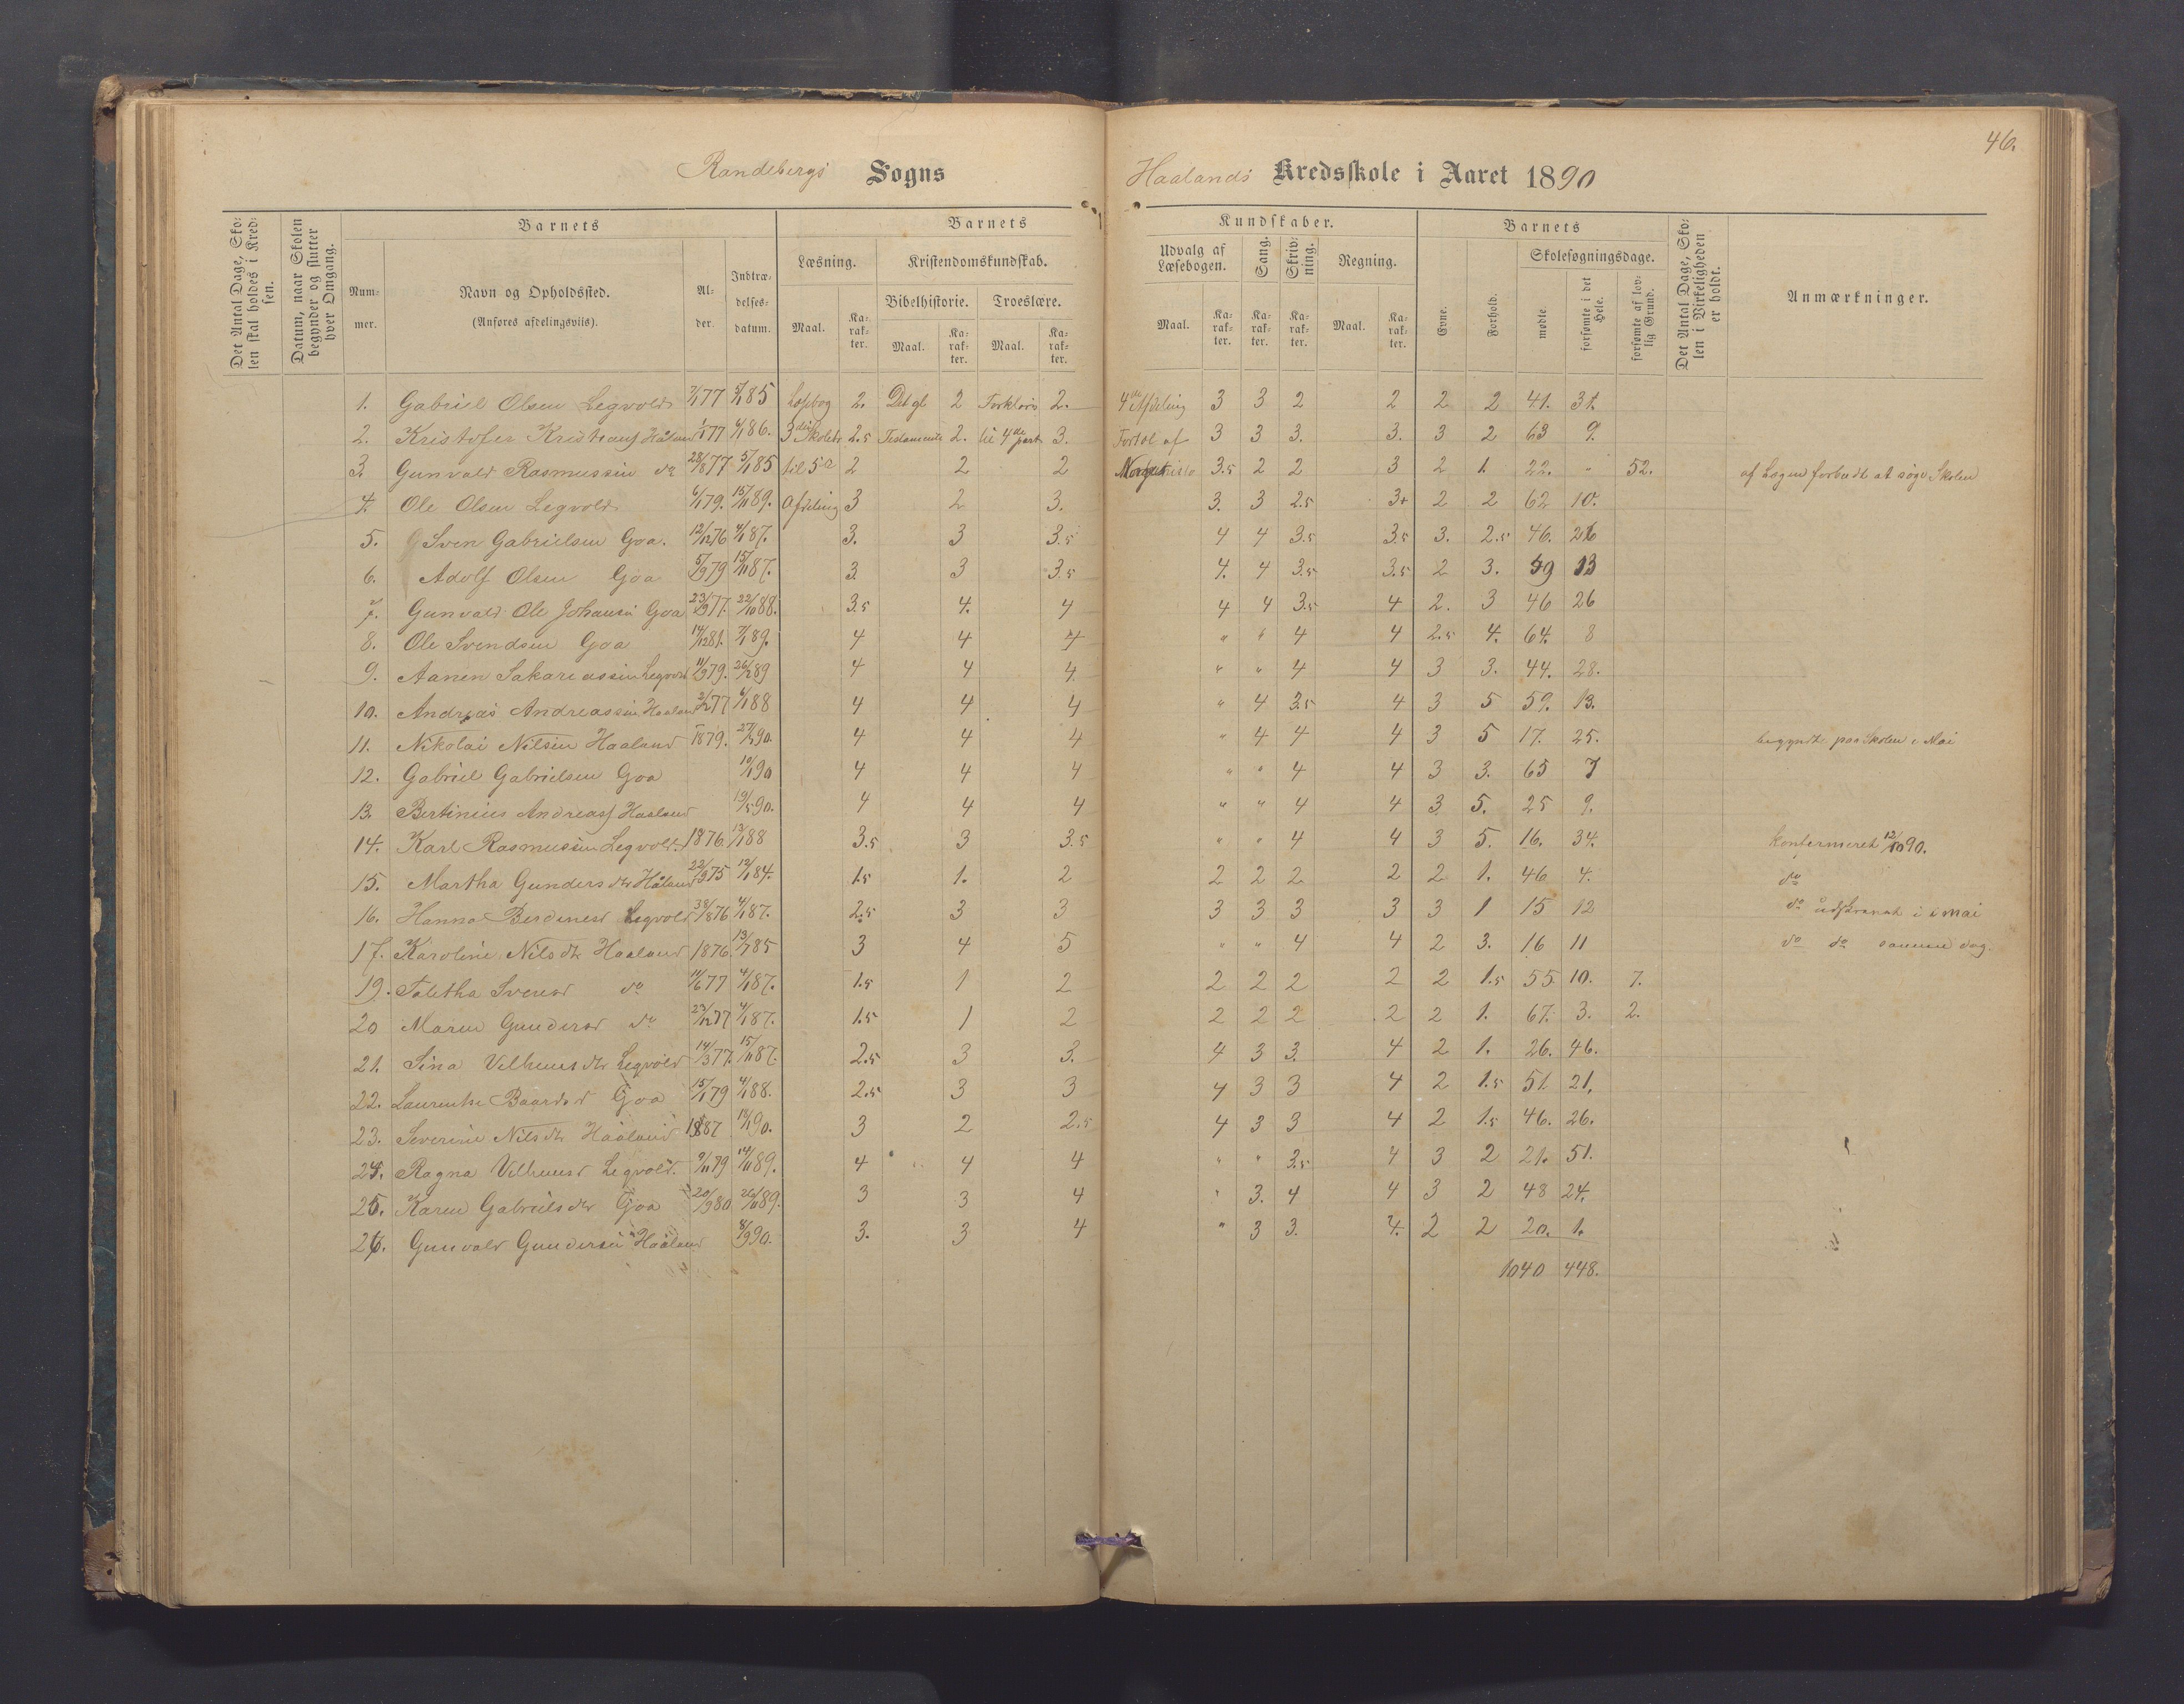 46.
Randebergs Sogns Haalands Kredsskole i Aaret 1890
Det Antal Dage, Skolen skal holdes i Kredsen.
Datum, naar Skolen begynder og slutter hver Omgang.
Barnets
Barnets
Kundskaber.
Barnets
Det Antal Dage, Skolen i Virkeligheden er holdt.
Anmærkninger.
Nummer.
Navn og Opholdssted.
(Anføres afdelingsviis).
Alder.
Indtrædelsesdatum.
Læsning.
Kristendomskundskab.
Udvalg af Læsebogen.
Sang.
Skrivning.
Regning.
Evne.
Forhold.
Skolesøgningsdage.
Bibelhistorie.
Troeslære.
Maal.
Karakter.
Maal.
Karakter.
Maal.
Karakter.
Maal.
Karakter.
Karakter.
Karakter.
Maal.
Karakter.
mødte
forsømte i det Hele.
forsømte af lovlig Grund.
1. Gabriel Olsen Legvold 77 85 2. Det gl 2 2. 4de Afdeling 3 3 2 2 2 2 41. 31.
2. Kristofer Haaland 77 86. 3die Skolete 2.5 Testamente 2. til 4de part 3. Fortæl af 3 3 3. 3. 3 2 63 9.
3. Gunvald Rasmussen do 28/8 77 5/1 85 til 5te 2 2 2 3.5 2 2 3 2 1. 22. " 52. af Lægen forbudt at søge Skolen
4. Ole Olsen Legvold 6/1 79. 15/11 89. Afdeling 3 2 3. 3. 3 2.5 3+ 2 2 62 10.
5. Sven Gabrielsen Goa. 12/12 76 4/1 87. 3. 3 3.5 4 4 3.5 3.5 3. 2.5 46. 26
6. Adolf Olsen Goa 5/9 79 15/11 87. 3. 3 3.5 4. 4 3.5 3.5 2 3. 59 13
7. Gunvald Ole Johansen Goa 23/9 77. 22/10 88. 3.5 4. 4 4 4 3.5 4 2. 3 46 26
8. Ole Svendsen Goa 14/12 81. 7/1 89. 4 4 4 " " 4 4 2.5 4. 64. 8
9. Aanen Sakareassen Legvold 11/9 79. 26/2 89 4 4 4. " " 4 4 3 3. 44. 28.
10. Andreas Andreassen Haaland 77 6/1 88 4 4 4 " 4 3.5 4 3 5 59. 13.
11. Nikolai Nilsen Haaland 1879. 90. 4 4 4 " 4 4 4 3 5 17. 25. begyndte paa Skolen i Mai
12. Gabriel Gabrielsen Goa 10/1 90 4 4 4 " " 4 4 3 3. 65 7
13. Bertinius Andreas Haaland 19/5 90. 4 4 4 " " 4 4 3 5. 25 9.
14. Karl Rasmussen Legvold. 1876. 13/1 88 3.5 3 3.5 " " 4 4 3 5. 16. 34. Konfermeret 12/10 90.
15. Martha Gundersdtr Håland 22/9 75 12/1 84. 1.5 1. 2 2 2 2 2 2 1. 46 4. do
16. Hanna Legvold 76 4/1 87. 2.5 3 3 3 3 3 3 3 1 15 12 do i mai
17. Karoline Nilsdtr Haaland 1876. 13/7 85 3 4 5 " " 4 4 2 3. 16 11 do do samme dag.
19. Taletha do 11/6 77 4/1 87. 1.5 1 2 2 2 2 2 2 1.5 55. 10. 7.
20 Maren Gundersd do 23/12 77 4/1 87. 1.5 1 2 2 2 2 2 2 1. 67. 3. 2.
21. Sina Vilhemsdtr Legvold 14/3 77. 15/11 87. 2.5 3 3. 4 3 3. 4 2 1. 26. 46.
22. Laurentse Baardsd Goa 15/1 79 4/1 88. 2.5 3 3 4 3 3 4 2 1.5 51. 21.
23. Severine Nilsdtr Haaland 90. 3 2 2.5 4 3 3 4 2 1.5 46. 26.
24. Ragna Vilhemsd Legvold. 9/11 79 14/11 89. 4 4 4 " " 3.5 4 3 2 21. 51.
25. Karen Gabrielsdtr Goa 20/9 80 26/11 89. 3 3 4 " 3. 4 4 3 2 48 24.
26. Gunvald Gundersen Haaland 8/9 90. 3. 3 4 " 3 3. 4. 2 2 20. 1.
1040 448.